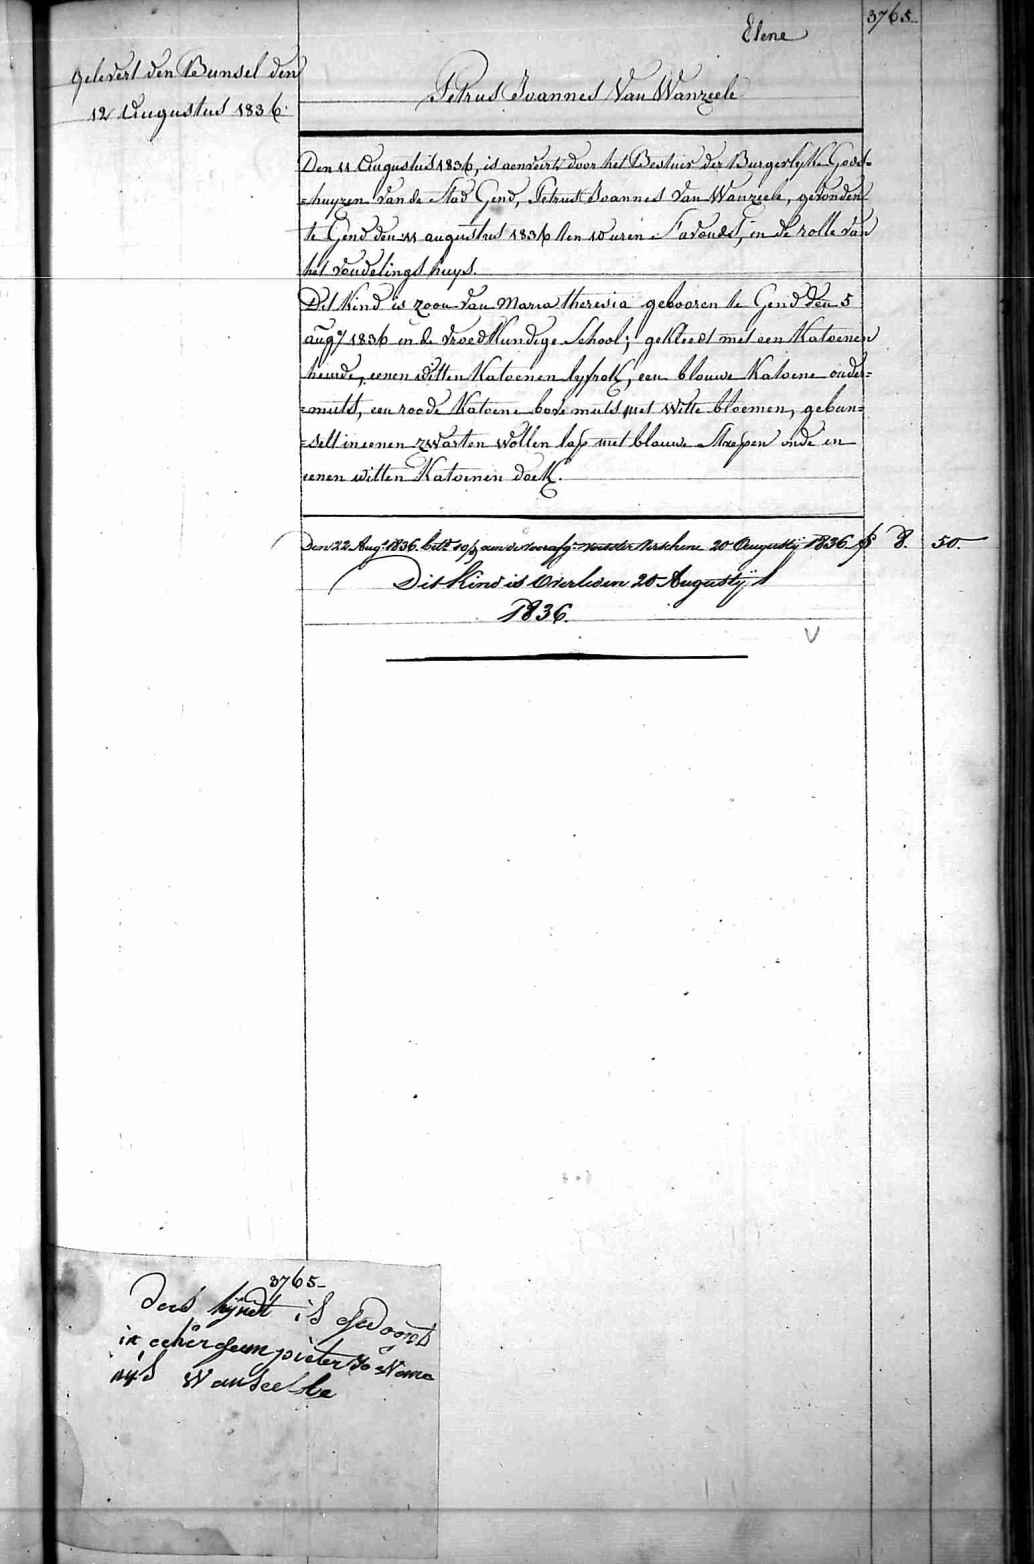 3765.
Elene
Gelevert den Bunsel den
12 Augustus 1836.
Petrus Joannes Van Wanzeele
Den 11 Augustus 1836, is aenveirt, door het Bestuer der Burgerlyke Gods=
=huyzen van de Stad Gend, Petrus Joannes Van Wanzeele, gevonden
te Gend den 11 augustus 1836 ten 10 uren s'avonds, in de rolle van
het vondelings huys.
Dit Kind is zoon van Maria theresia gebooren te Gend den 5
augs 1836 in de vroedkundige School; gekleedt met een Katoenen
hemde, eenen witten Katoenen lyfrok, een blauwe Katoene onder=
=muts, een roode Katoene bove muts met witte bloemen, gebun=
=selt in eenen zwarten wollen lap met blauwe strepen ende in
eenen witten Katoenen doek.
Den 22 Augt 1836 bett aen de voorsz. voedster Verschene 20 Augusty 1836 8. 50.
Dit Kind is Overleden 20 Augusty
1836.
3765
kijndt is gedoopt
pieter Jo
Wanseele